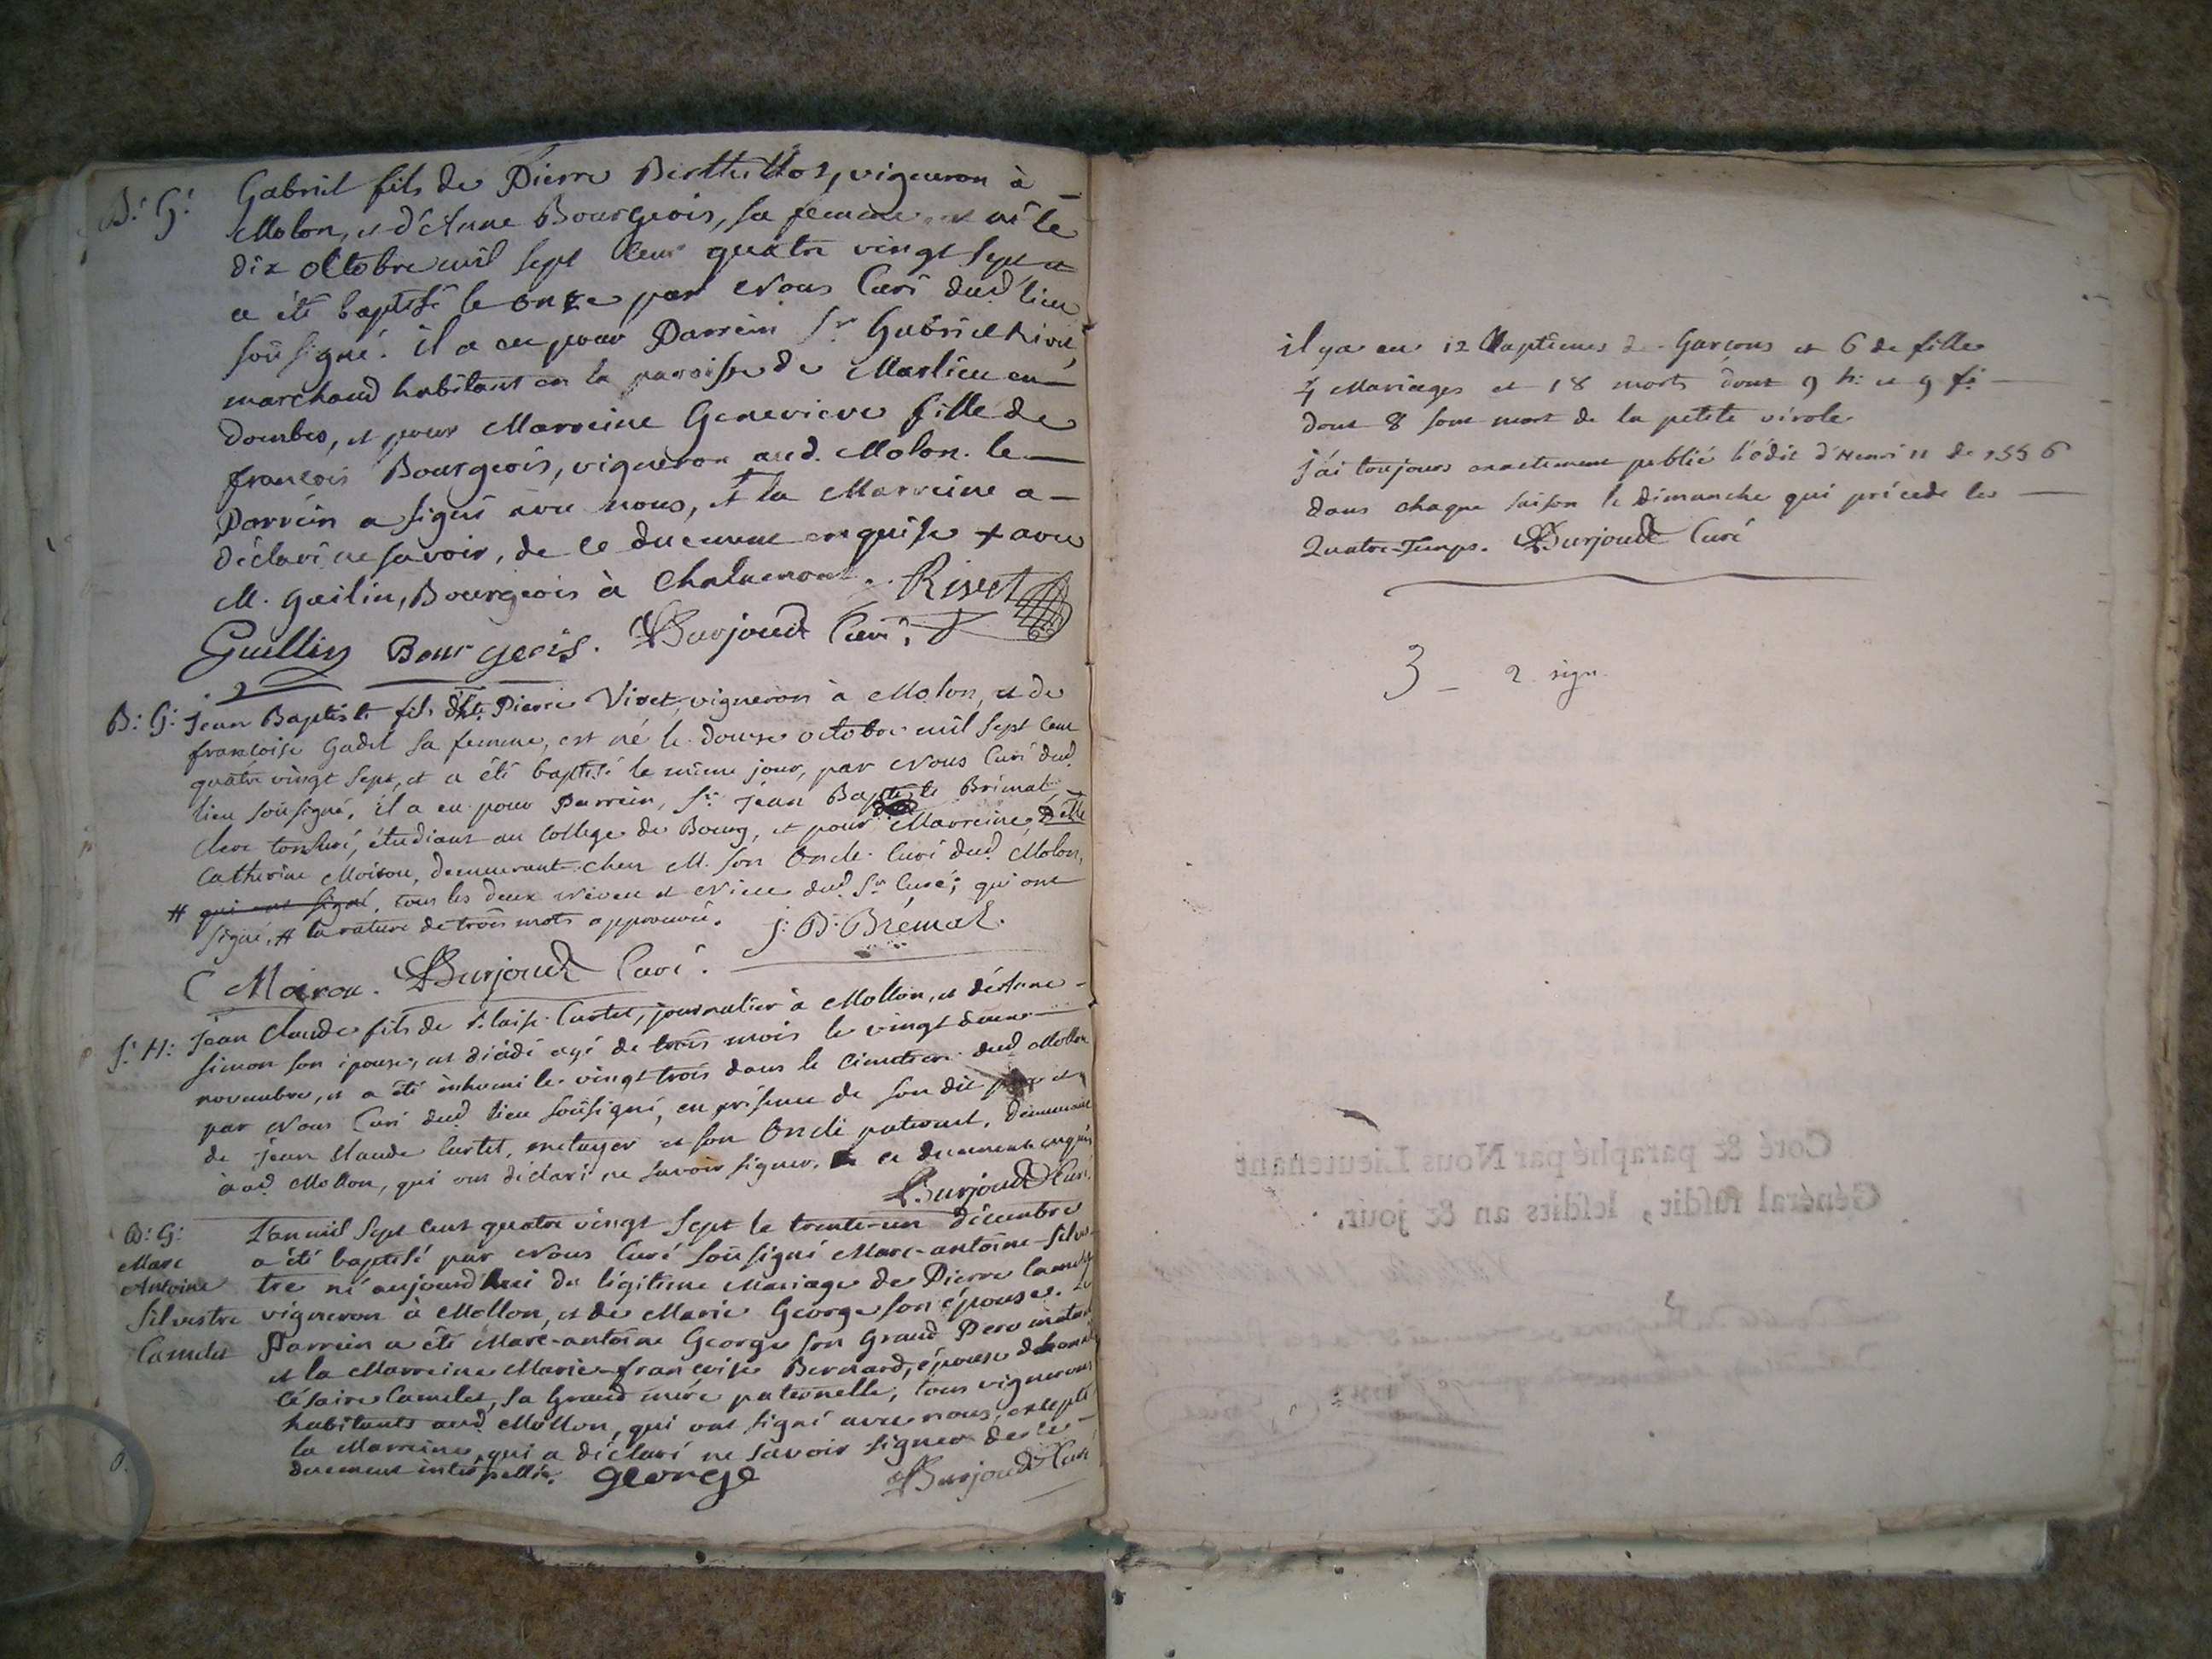 B: G: Gabriel fils de Pierre Berthillot, vigneron à
Molon, et d'Anne Bourgeois, sa femme né le
dix octobre mil sept cent quatre vingt sept et
a été baptisé le onze par Nous Curé dud. lieu
soûsigné. il a eu pour Parrein Sr Gabriel Rivet,
marchand habitant en la paroisse de Marlieu en
Dombes, et pour Marreine Genevieve fille de
françois Bourgeois, vigneron aud. Molon. le
Parrein a signé avec nous, et la Marreine a
déclaré ne savoir, de ce duement enquise + avec
M. Guilin, Bourgeois à Chalamont. Rivet
Guillin Bourgeois. Burjoud Curé.
B: G: Jean Baptiste fils de Pierre Vivet, vigneron à Molon, et de
françoise Gadel sa femme, est né le douze octobre mil sept cent
quatre vingt sept, et a été baptisé le même jour, par Nous Curé dud.
lieu soûsigné, il a eu pour Parrein, Sr Jean Baptiste Brémal
clerc tonsuré, étudiant au College de Bourg, et pour Marreine Delle
Catherine Moiron, demeurant chez M. son Oncle Curé dud. Molon,
# qui ont signé, tous les deux Neveu et Niece dud. Sr Curé; qui ont
signé. # la rature de trois mots approuvée. J: B: Brémal.
C Moiron. Burjoud Curé.
S: H: Jean Claude fils de Blaise Curtet, journalier à Mollon, et d'Anne
Simon son épouse, est décédé agé de trois mois le vingt deux
novembre, et a été inhumé le vingt trois dans le Cimetiere dud. Mollon
par Nous Curé dud. lieu soûsigné, en présence de son dit pere et
de Jean Claude Curtet, metayer et son Oncle paternel, demeurant
aud. Mollon, qui ont déclaré ne savoir signer, de ce duement enquis
Burjoud Curé.
B: G: L'an mil sept cent quatre vingt sept le trente-un décembre
Marc a été baptisé par Nous Curé soûsigné Marc-antoine-silves-
Antoine tre né aujourd'hui du légitime Mariage de Pierre Camelet
Silvestre vigneron à Mollon, et de Marie George son épouse. Le
Camelet Parrein a été Marc-antoine George son Grand Pere maternel
et la Marreine Marie-françoise Bernard, épouse d'honnête
Césaire Camelet, sa Grand mére paternelle, tous vignerons
habitants aud. Mollon, qui ont signé avec nous, excepté
la Marreine, qui a déclaré ne savoir signer de ce
duement interpellée. George Burjoud Curé
il y a eu 12 Baptêmes de Garçons et 6 de fille
4 Mariages et 18 morts dont 9 h: et 9 f:
dont 8 sont mort de la petite vérole
j'ai toujours exactement publié l'édit d'Henri II de 1556
dans chaque saison le dimanche qui précede les
Quatre-Temps. Burjoud Curé
3 - 2 sign.
Coté & paraphé par Nous Lieutenant
Général susdit, lesdits an & jour.